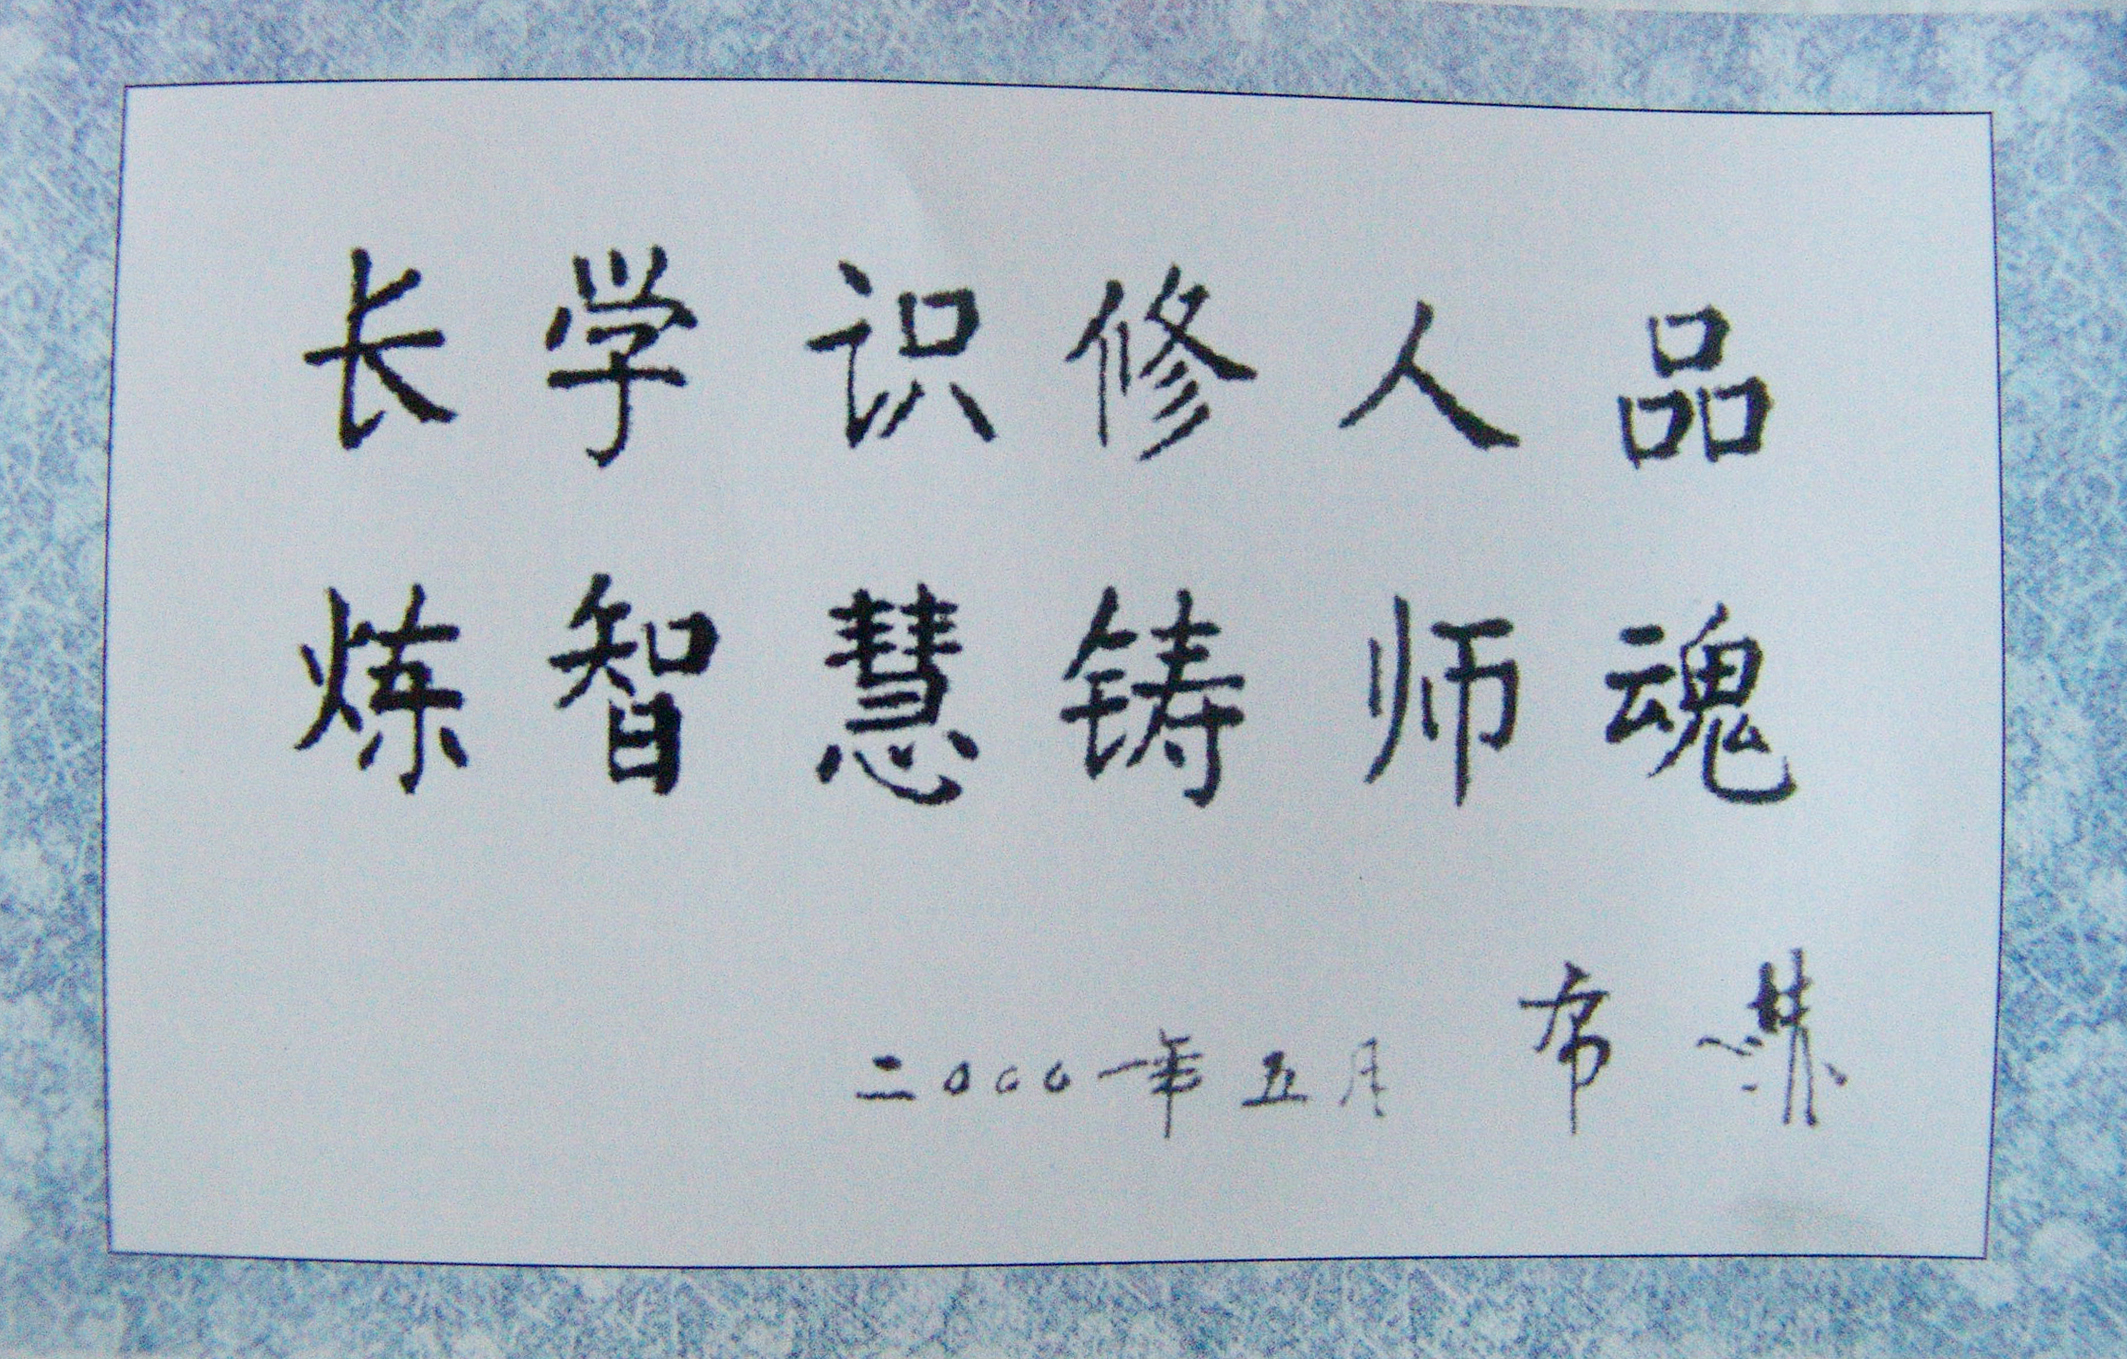 长学识修人品
炼智慧铸师魂
二〇〇〇一年五月 布赫